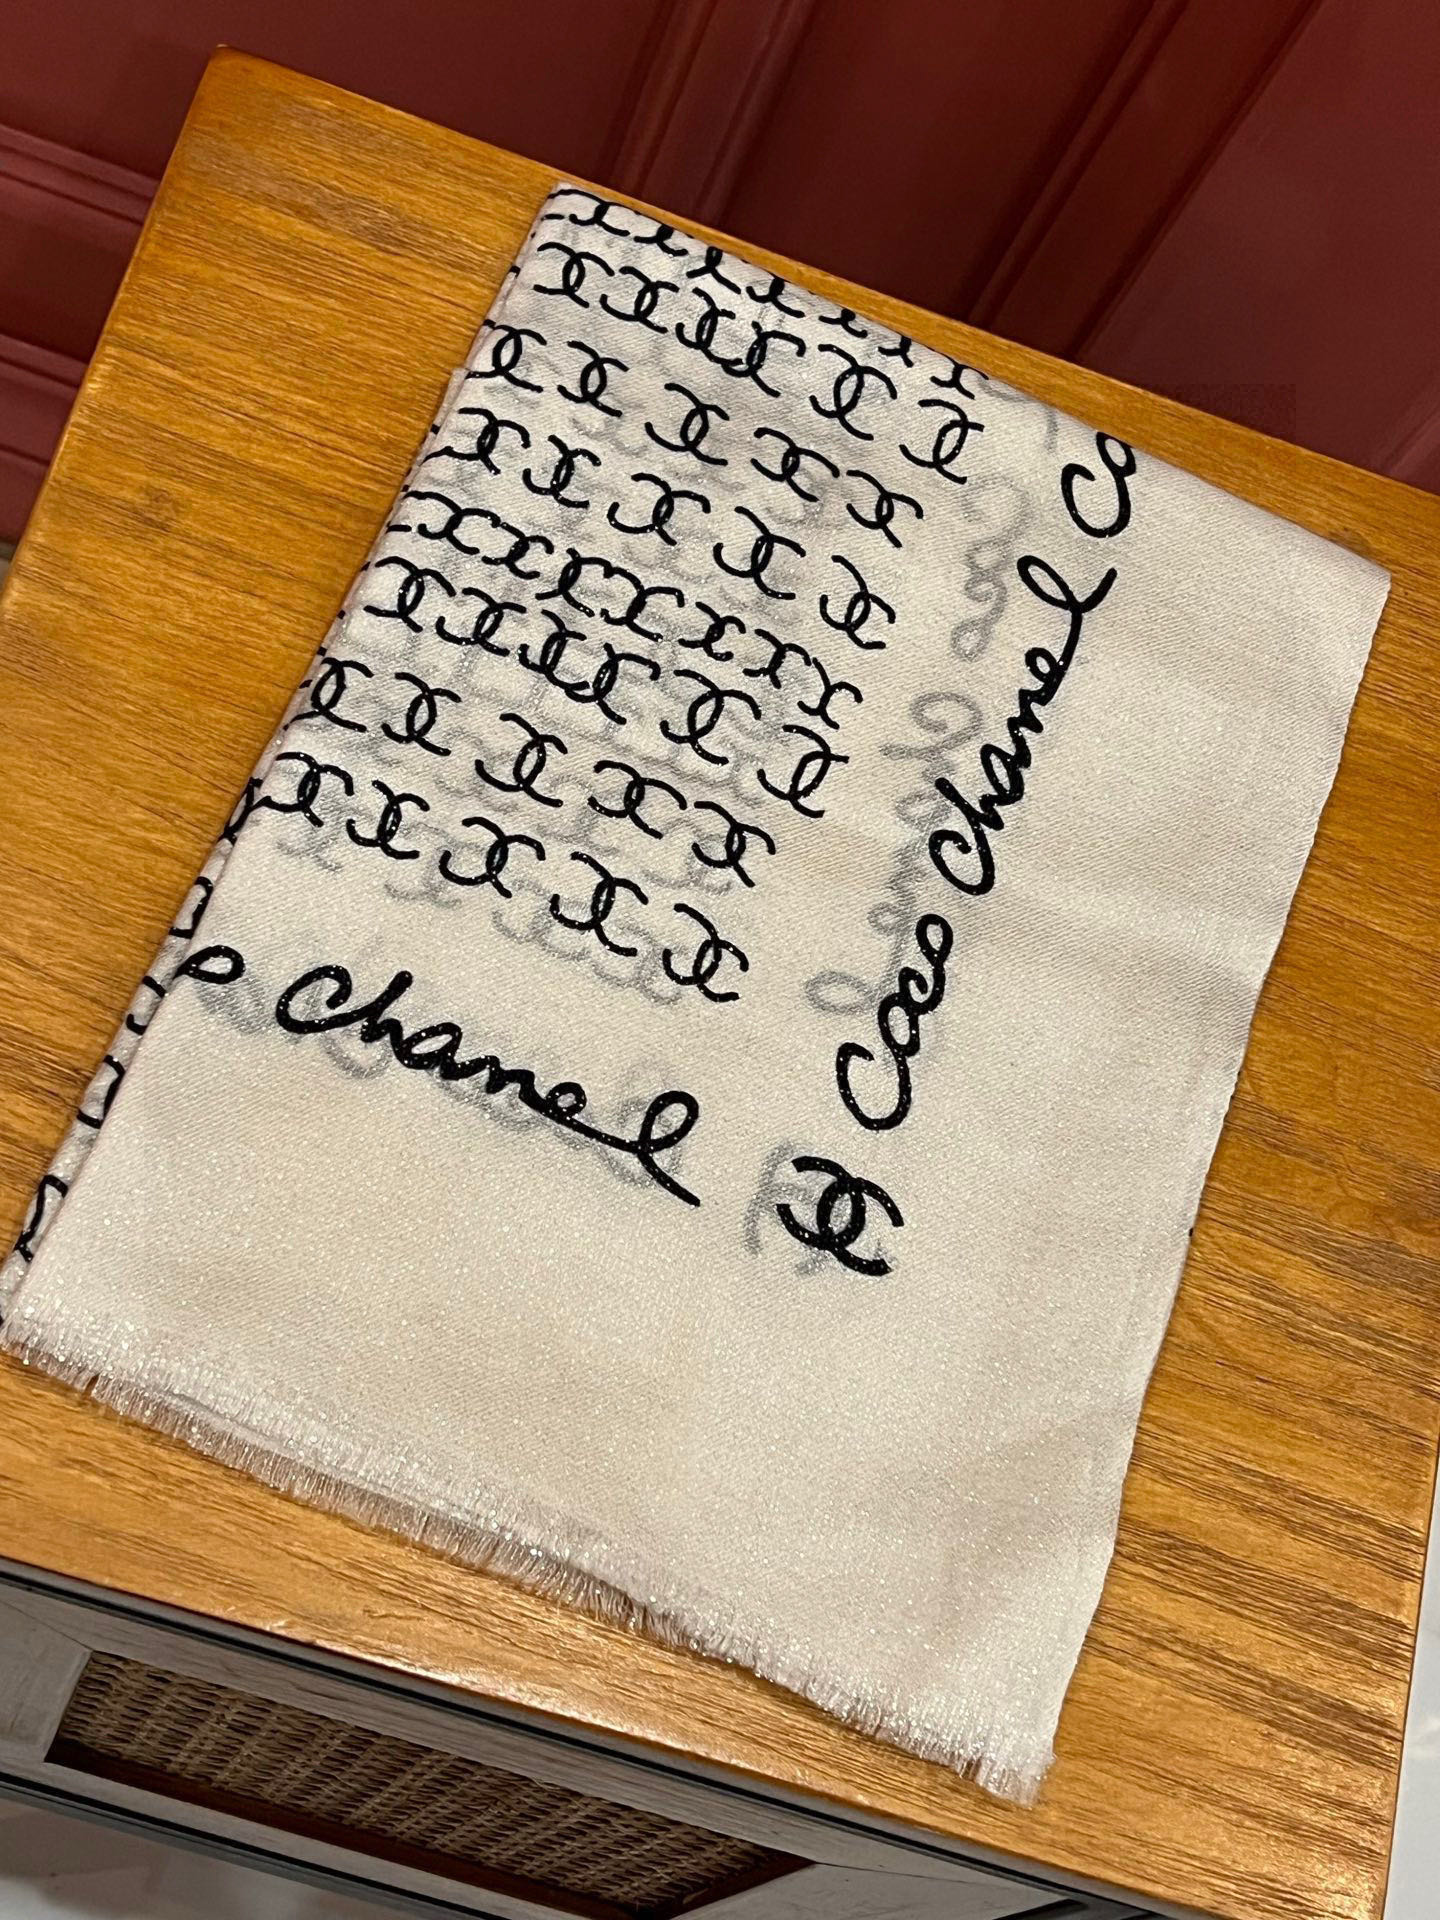 Co
coco chanel
chanel